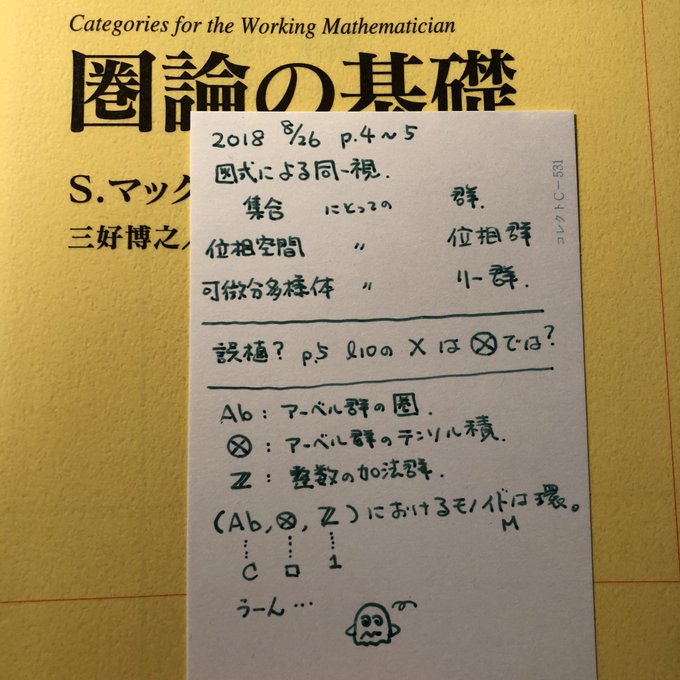 Categories for the Working Mathematician
圏論の基礎
S.マック
三好博之
コレクト C-531
2018 8/26 p.4~5
図式による同一視.
集合 にとっての 群.
位相空間 〃 位相群
可微分多様体 〃 リー群.
誤植? p.5 l10の × は ⊗では?
Ab : アーベル群の圏.
⊗ : アーベル群のテンソル積.
ℤ : 整数の加法群.
(Ab, ⊗, ℤ)におけるモノイドは環。
M
C □ 1
うーん…